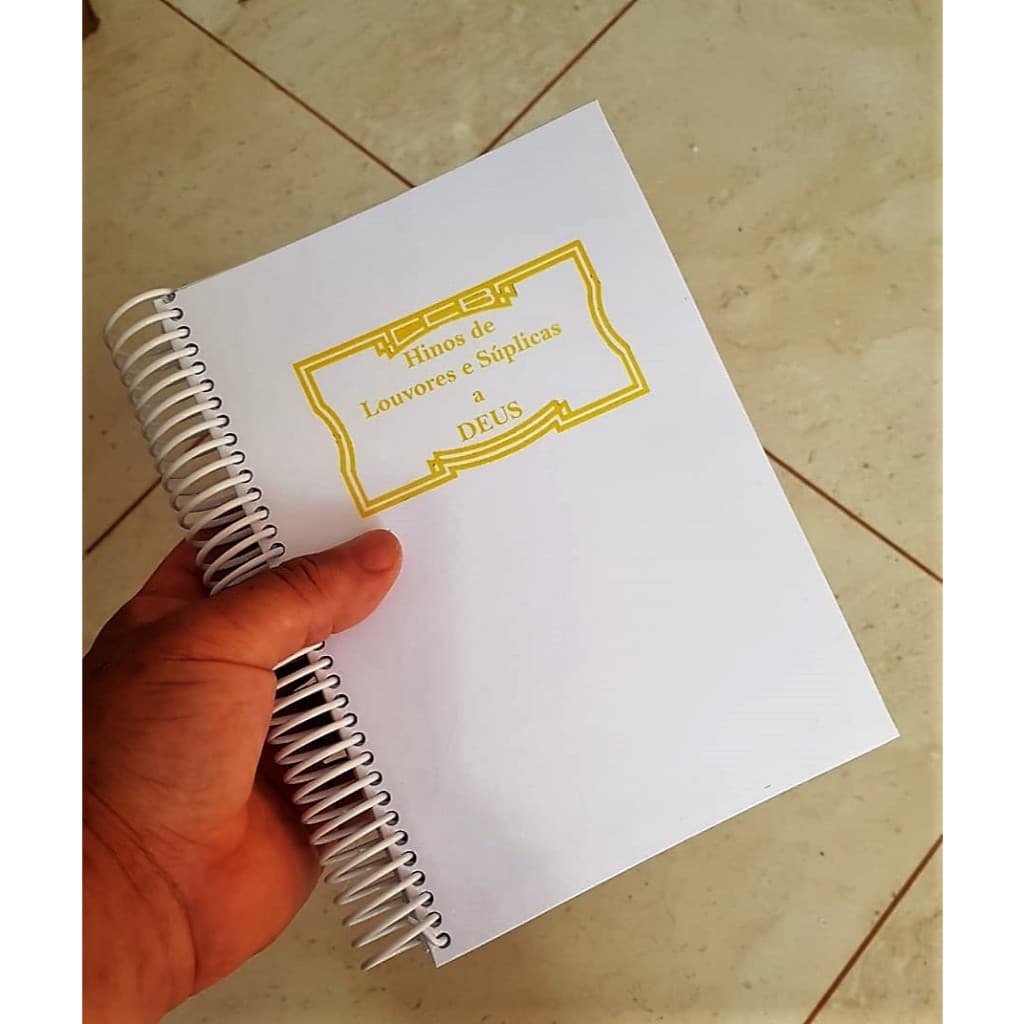 CCB
Hinos de
Louvores e Súplicas
a
DEUS